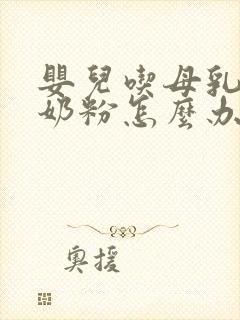 嬰兒喫母乳
奶粉怎麼办
奧援